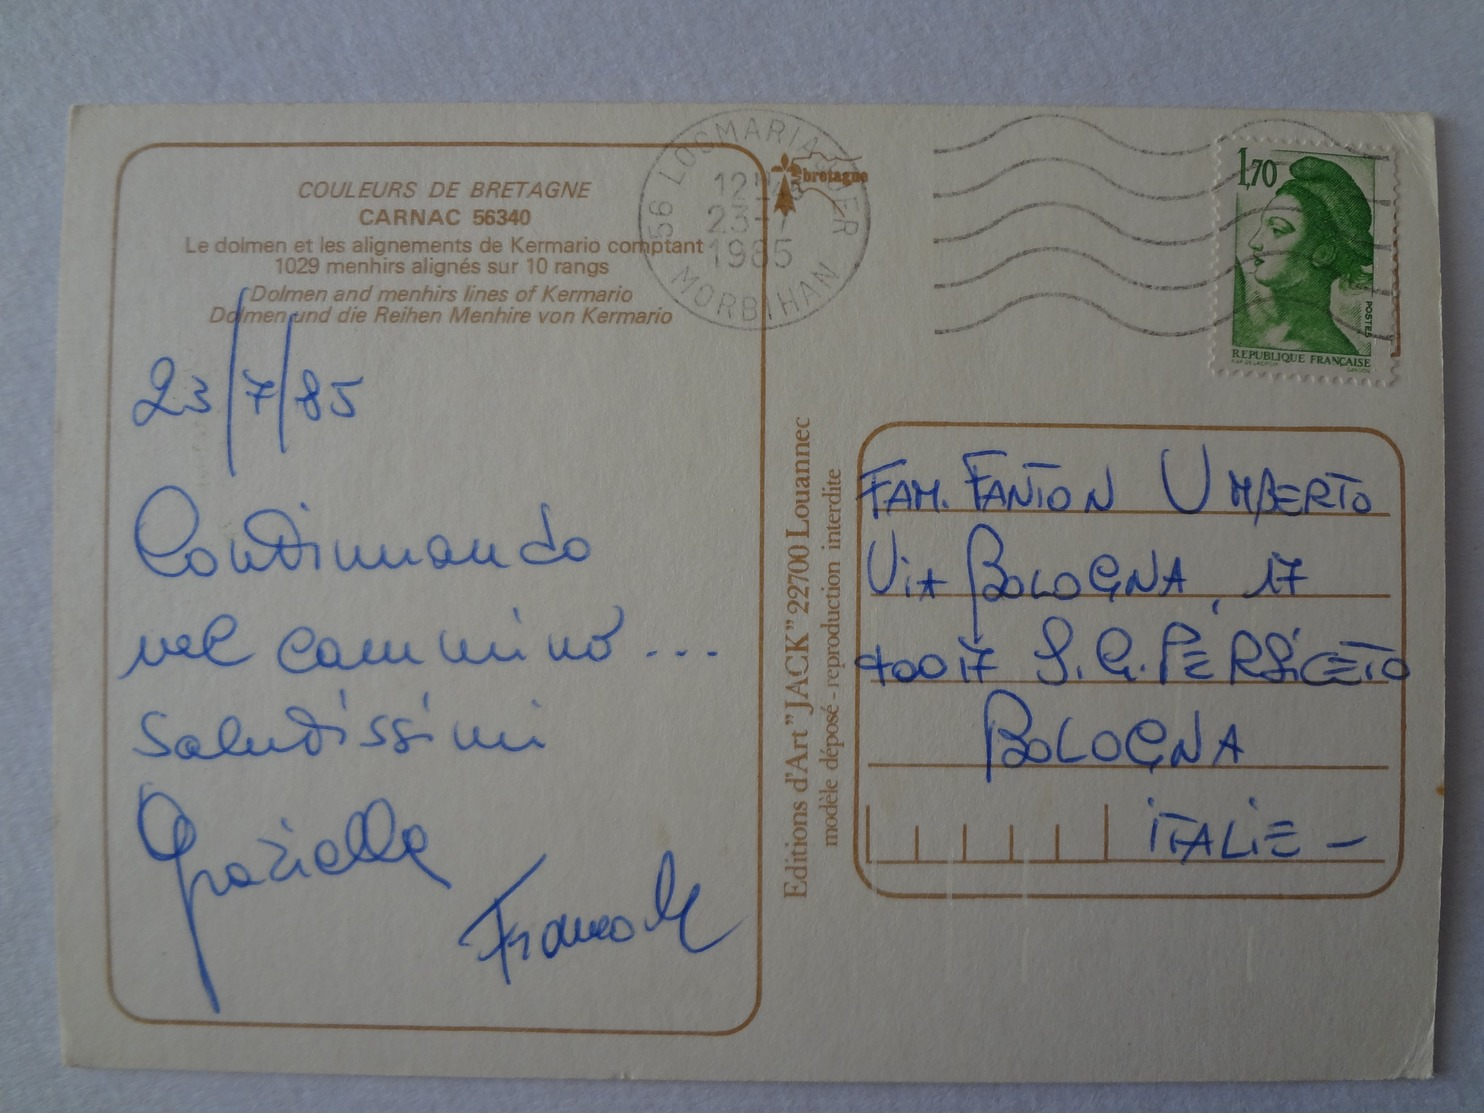 COULEURS DE BRETAGNE
CARNAC 56340
Le dolmen et les alignements de Kermario comptant
1029 menhirs alignés sur 10 rangs
Dolmen and menhirs lines of Kermario
Dolmen und die Reihen Menhire von Kermario
23/7/85
Continuando
nel cammino...
salutissimi
Graziella
Franco
56 LOCMARIAQUER
23-7
1985
MORBIHAN
bretagne
1,70
POSTES
REPUBLIQUE FRANÇAISE
Editions d'Art "JACK" 22700 Louannec
modèle déposé - reproduction interdite
FAM. FANTON UMBERTO
VIA BOLOGNA, 17
40017 S. G. PERSICETO
BOLOGNA
ITALIE -